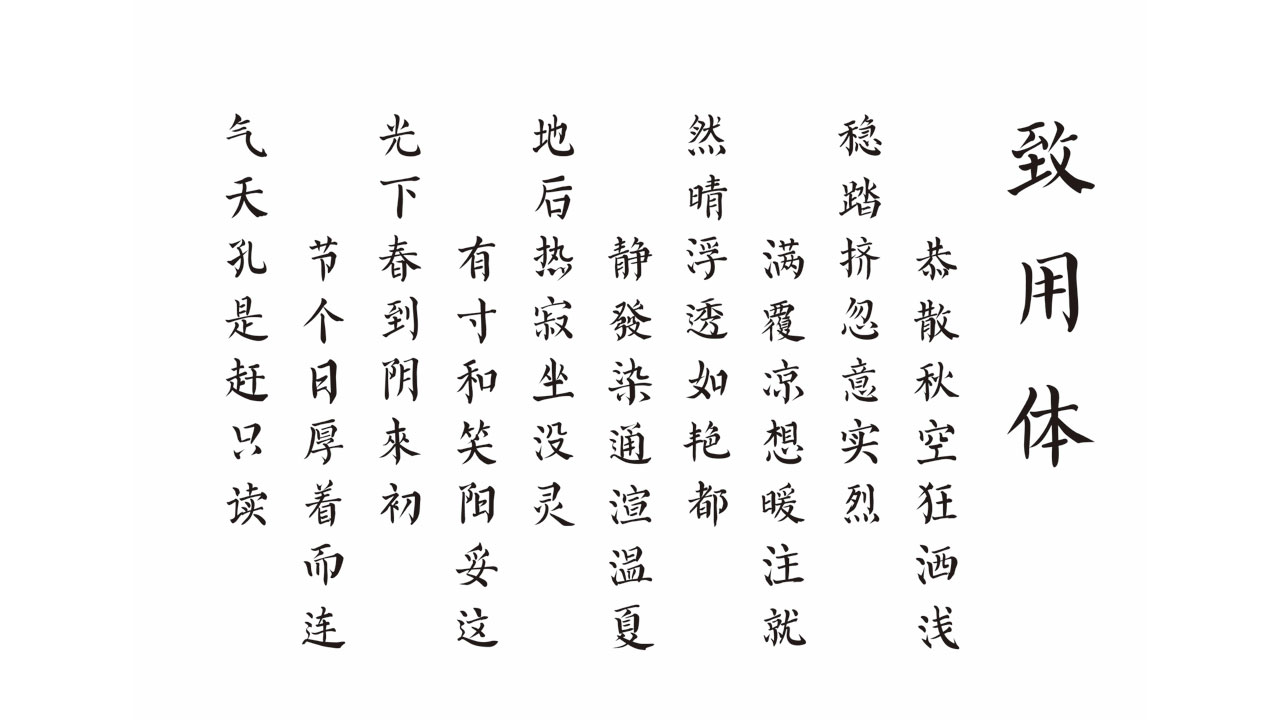 致用体
恭散秋空狂洒浅
稳踏挤忽意实烈
满覆凉想暖注就
然晴浮透如艳都
静發染通渲温夏
地后热寂坐没灵
有寸和笑阳妥这
光下春到阴來初
节个目厚着而连
气天孔是赶只读